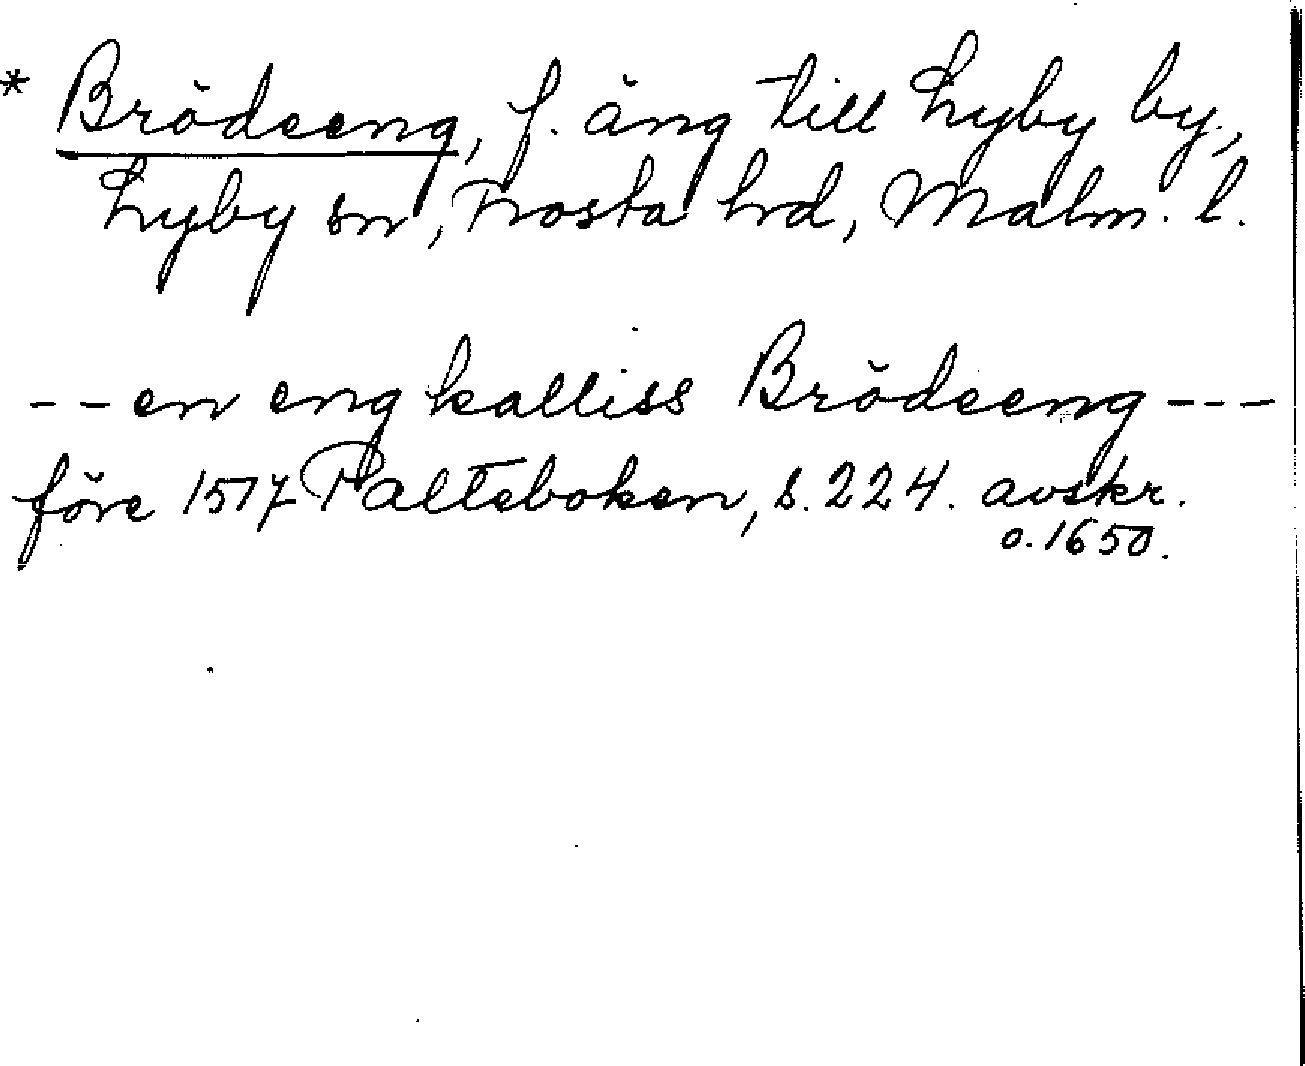 * Brödeeng, f. äng till Lyby by.,
Lyby sn, Frosta hrd, Malm. l.
-- en eng kalliss Brödeeng ---
före 1517 Palteboken, s. 224. avskr.
o. 1650.